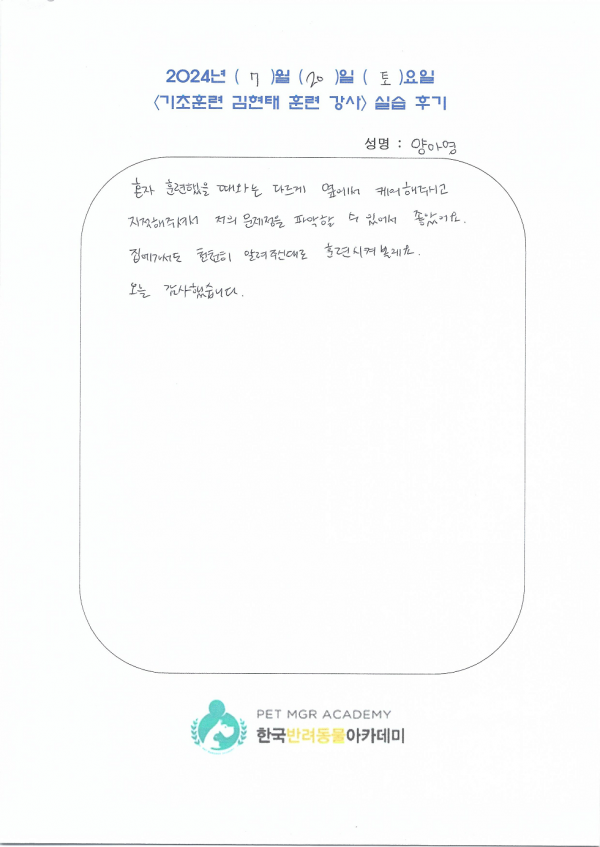 2024년 ( 7 )월 ( 20 )일 ( 토 )요일
<기초훈련 김현태 훈련 강사> 실습 후기
성명 : 양아영
혼자 훈련했을 때와는 다르게 옆에서 케어해주시고
지적해주셔서 저의 문제점을 파악할 수 있어서 좋았어요.
집에가서도 천천히 알려주신대로 훈련시켜볼게요.
오늘 감사했습니다.
PET MGR ACADEMY
한국반려동물아카데미